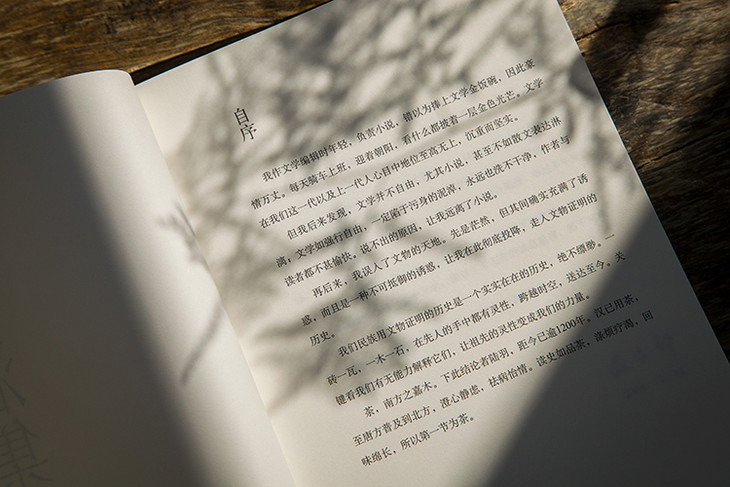 自序
我作文学编辑时年轻，负责小说，错以为捧上文学金饭碗，因此豪
情万丈。每天骑车上班，迎着朝阳，看什么都披着一层金色光芒。文学
在我们这一代以及上一代人心目中地位至高无上，沉重而坚实。
但我后来发现，文学并不自由，尤其小说，甚至不如散文表达淋
漓；文学如强行自由，一定陷于污身的泥淖，永远也洗不干净，作者与
读者都不甚愉快。说不出的原因，让我远离了小说。
再后来，我误入了文物的天地。先是茫然，但其间确实充满了诱
惑，而且是一种不可抵御的诱惑，让我在此彻底投降，走入文物证明的
历史。
我们民族用文物证明的历史是一个实实在在的历史，绝不缥缈。一
砖一瓦，一木一石，在先人的手中都有灵性，跨越时空，送达至今。关
键看我们有无能力解释它们，让祖先的灵性变成我们的力量。
茶，南方之嘉木。下此结论者陆羽，距今已逾1200年。汉已用茶，
至唐方普及到北方，澄心静虑，祛病怡情。读史如品茶，涤烦疗渴，回
味绵长，所以第一节为茶。